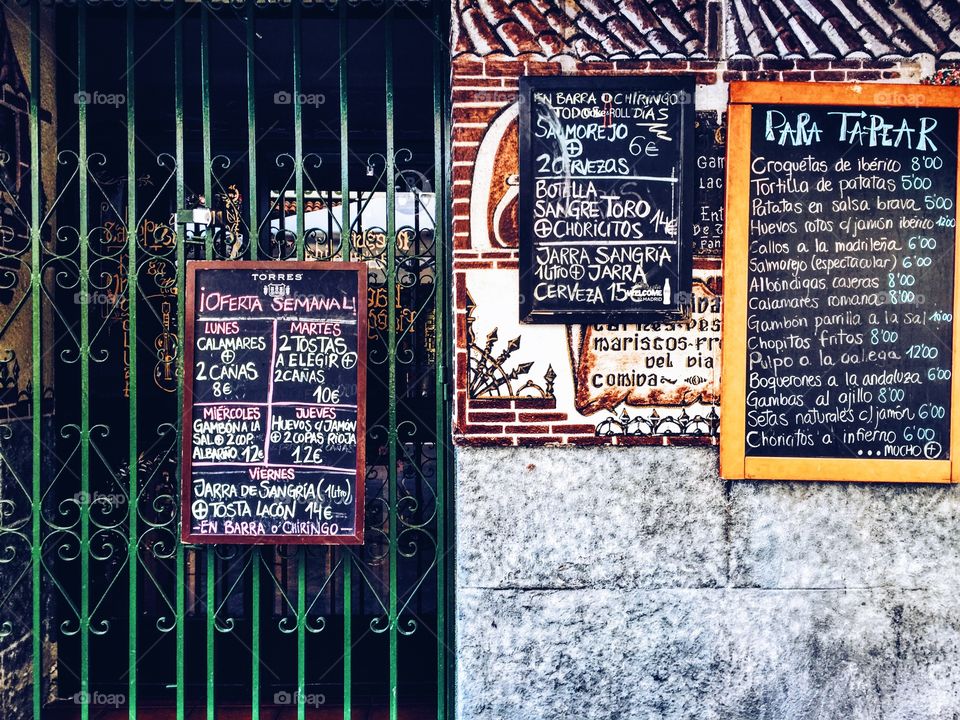 TORRES
¡OFERTA SEMANAL!
LUNES
CALAMARES
+
2 CAÑAS
8€
MARTES
2 TOSTAS
A ELEGIR +
2 CAÑAS
10€
MIÉRCOLES
GAMBÓN A LA
SAL + 2 COP.
ALBARIÑO 12€
JUEVES
HUEVOS C/ JAMÓN
+ 2 COPAS RIOJA
CAÑAS
12€
VIERNES
JARRA DE SANGRÍA (1 litro)
+ TOSTA LACÓN 14€
-EN BARRA O CHIRINGO-
EN BARRA O CHIRINGO
TODOS LOS DÍAS
SALMOREJO
+
2 CERVEZAS
6€
BOTELLA
SANGRE TORO
+ CHORICITOS
14€
JARRA SANGRÍA
1 litro + JARRA
CERVEZA 15
WELCOME
MADRID
mariscos-
del dia
comida
PARA TAPEAR
Croquetas de ibérico 8'00
Tortilla de patatas 5'00
Patatas en salsa brava 5'00
Huevos rotos c/jamón ibérico 12'00
Callos a la madrileña 6'00
Salmorejo (espectacular) 6'00
Albóndigas caseras 8'00
Calamares romana 8'00
Gambón parrilla a la sal 10'00
Chopitos fritos 8'00
Pulpo a la gallega 12'00
Boquerones a la andaluza 6'00
Gambas al ajillo 8'00
Setas naturales c/jamón 6'00
Choricitos a infierno 6'00
...MUCHO +
foap